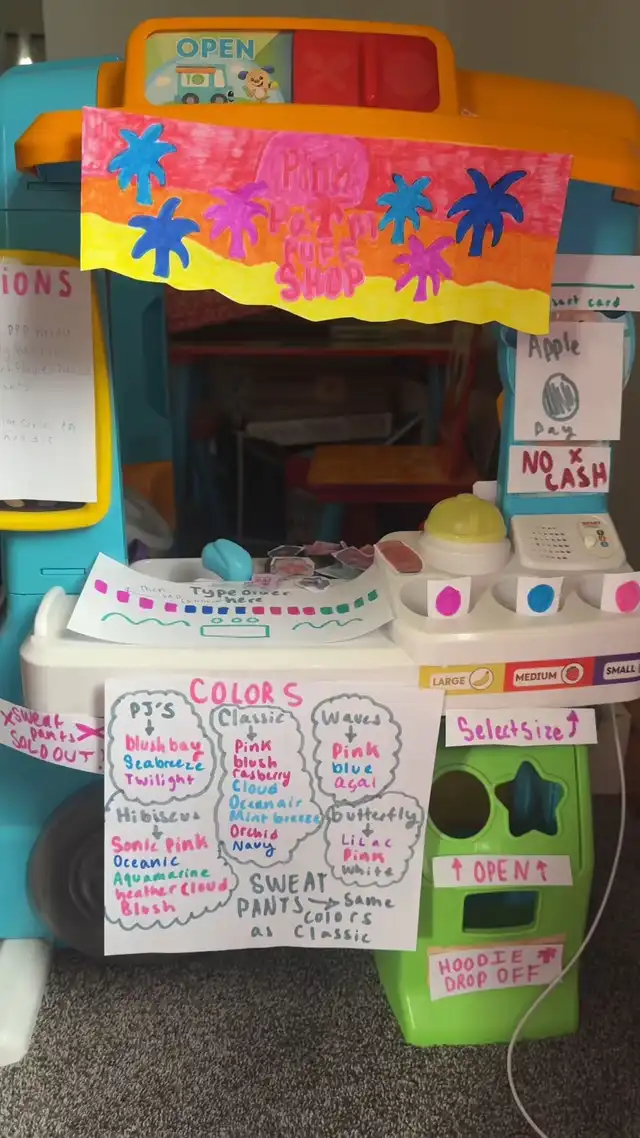 OPEN
Pink
Palm
PUFF
SHOP
IONS
art card
Apple
Pay
NO x
CASH
Then
Type order
here
LARGE
MEDIUM
SMALL
x sweat
pants x
SOLD OUT!
COLORS
PJ'S
blush bay
Seabreeze
Twilight
Classic
Pink
blush
rasberry
Cloud
Ocean air
Mint breeze
Orchid
Navy
Waves
Pink
blue
açai
Hibiscus
Sonic Pink
Oceanic
Aquamarine
heather Cloud
Blush
butterfly
Lilac
Pink
White
SWEAT
PANTS → Same
colors
as Classic
Select size
OPEN
HOODIE
DROP OFF